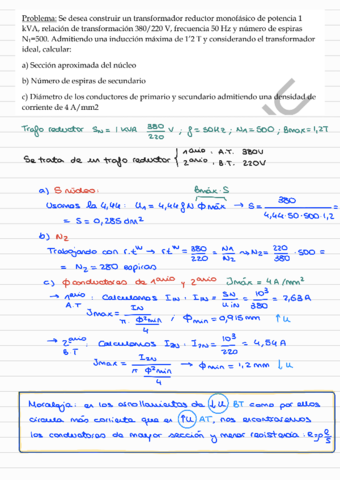 Problema: Se desea construir un transformador reductor monofásico de potencia 1
kVA, relación de transformación 380/220 V, frecuencia 50 Hz y número de espiras
N₁=500. Admitiendo una inducción máxima de 1'2 T y considerando el transformador
ideal, calcular:
a) Sección aproximada del núcleo
b) Número de espiras de secundario
c) Diámetro de los conductores de primario y secundario admitiendo una densidad de
corriente de 4 A/mm2
Trafo reductor SN = 1 kVA 380/220 V, f = 50Hz, N1 = 500, Bmax = 1,2T
Se trata de un trafo reductor { 1ario : A.T. 380V
2ario : B.T. 220V
a) S núcleo:
Bmáx·S
Usamos la 4,44: U1 = 4,44 f N ϕmáx → S = 380 / 4,44·50·500·1,2 =
= S = 0,285 dm²
b) N2
Trabajando con r.tʷ → r.tʷ = 380/220 = N1/N2 → N2 = 220/380 · 500 =
= N2 = 290 espiras
c) ϕ conductores de 1ario y 2ario Jmáx = 4 A/mm²
→ 1ario : Calculamos I1N : I1N = SN/U1N = 10³/380 = 2,63A
A.T
Jmax = I1N / π ϕ²min/4 ; ϕmin = 0,915mm ↑U
→ 2ario : Calculamos I2N : I2N = 10³/220 = 4,54A
B.T
Jmax = I2N / π ϕ²min/4 → ϕmin = 1,2 mm ↓U
Moraleja: en los arrollamientos de ↓U BT como por ellos
circula más corriente que en ↑U AT, nos encontraremos
los conductores de mayor sección y menor resistencia : R=ρ ℓ/S